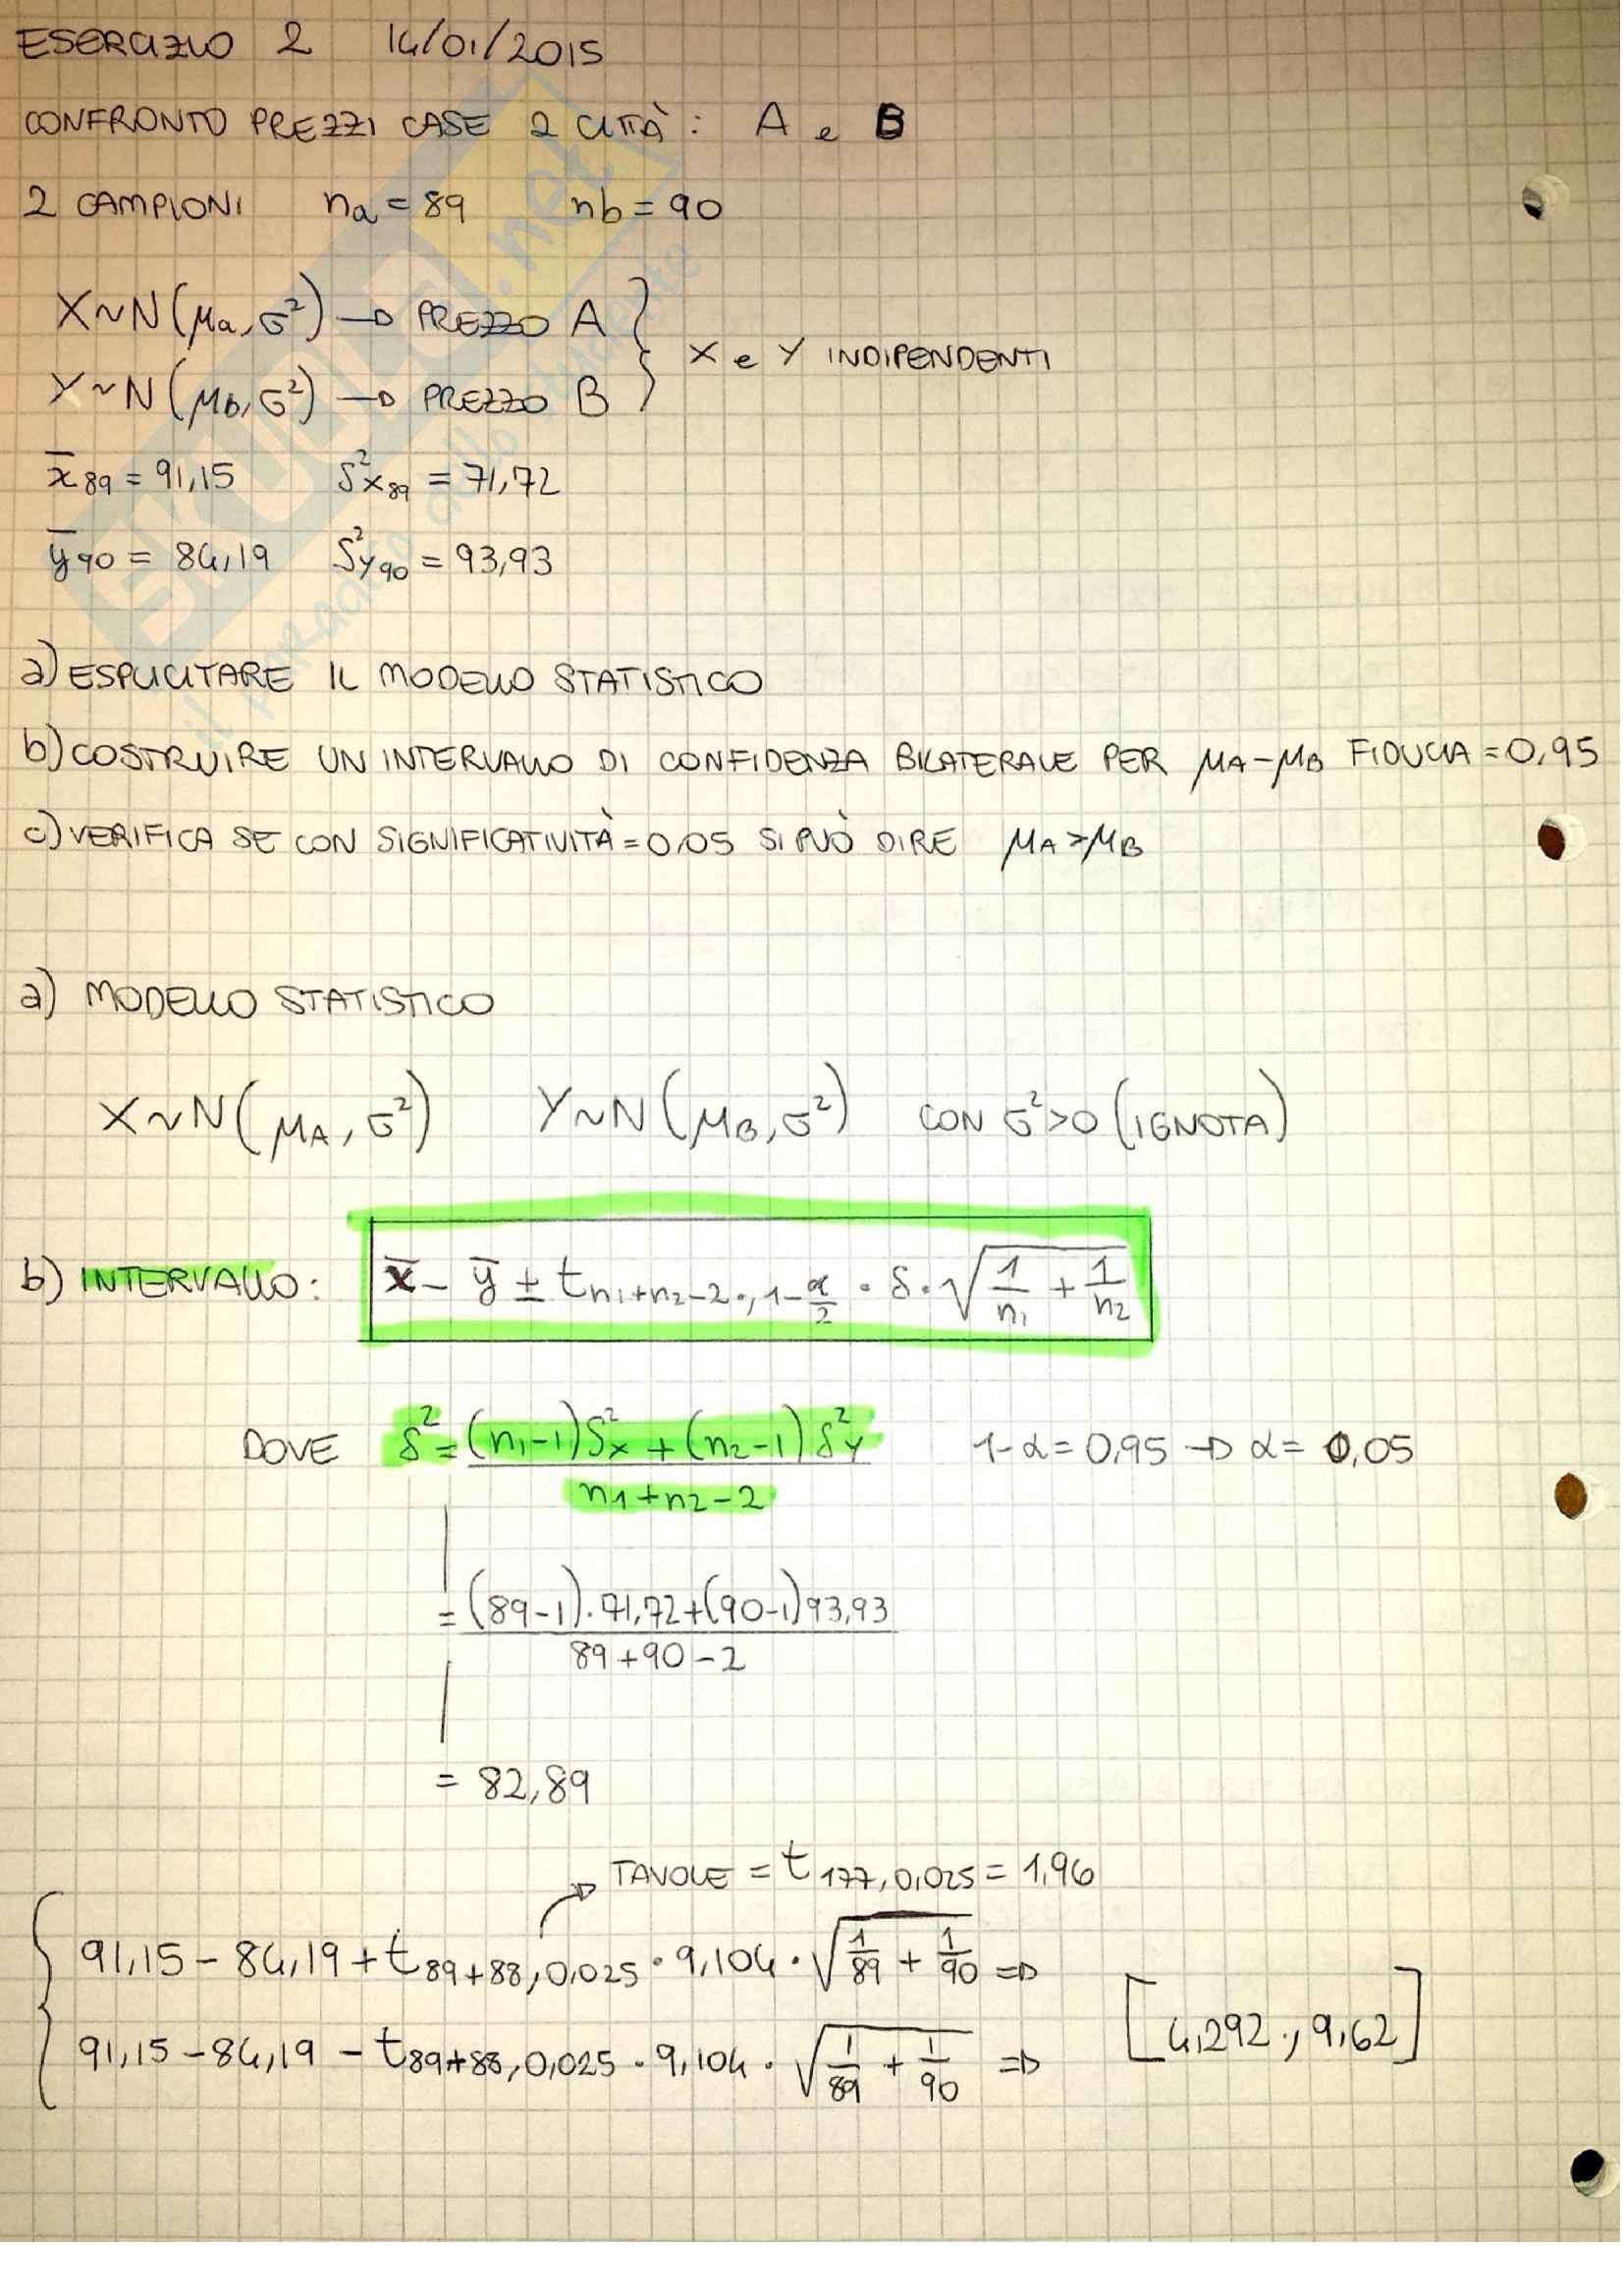 ESERCIZIO 2 14/01/2015
CONFRONTO PREZZI CASE 2 CITTÀ: A e B
2 CAMPIONI na = 89 nb = 90
X~N(μa, σ²) → PREZZO A
Y~N(μb, σ²) → PREZZO B
} X e Y INDIPENDENTI
x̄89 = 91,15 S²x89 = 71,72
ȳ90 = 84,19 S²y90 = 93,93
a) ESPLICITARE IL MODELLO STATISTICO
b) COSTRUIRE UN INTERVALLO DI CONFIDENZA BILATERALE PER μA-μB FIDUCIA = 0,95
c) VERIFICA SE CON SIGNIFICATIVITÀ = 0,05 SI PUÒ DIRE μA > μB
a) MODELLO STATISTICO
X~N(μA, σ²) Y~N(μB, σ²) CON σ²>0 (IGNOTA)
b) INTERVALLO: x̄ - ȳ ± t n1+n2-2 ; 1-α/2 · S · √(1/n1 + 1/n2)
DOVE S² = (n1-1)S²x + (n2-1)S²y / n1+n2-2 1-α = 0,95 → α = 0,05
= (89-1)·71,72+(90-1)93,93 / 89+90-2
= 82,89
TAVOLE = t 177, 0,025 = 1,96
91,15 - 84,19 + t 89+88, 0,025 · 9,104 · √(1/89 + 1/90) ⇒
91,15 - 84,19 - t 89+88, 0,025 · 9,104 · √(1/89 + 1/90) ⇒
[4,292 ; 9,62]
SKUOLA.net
il paradiso dello studente